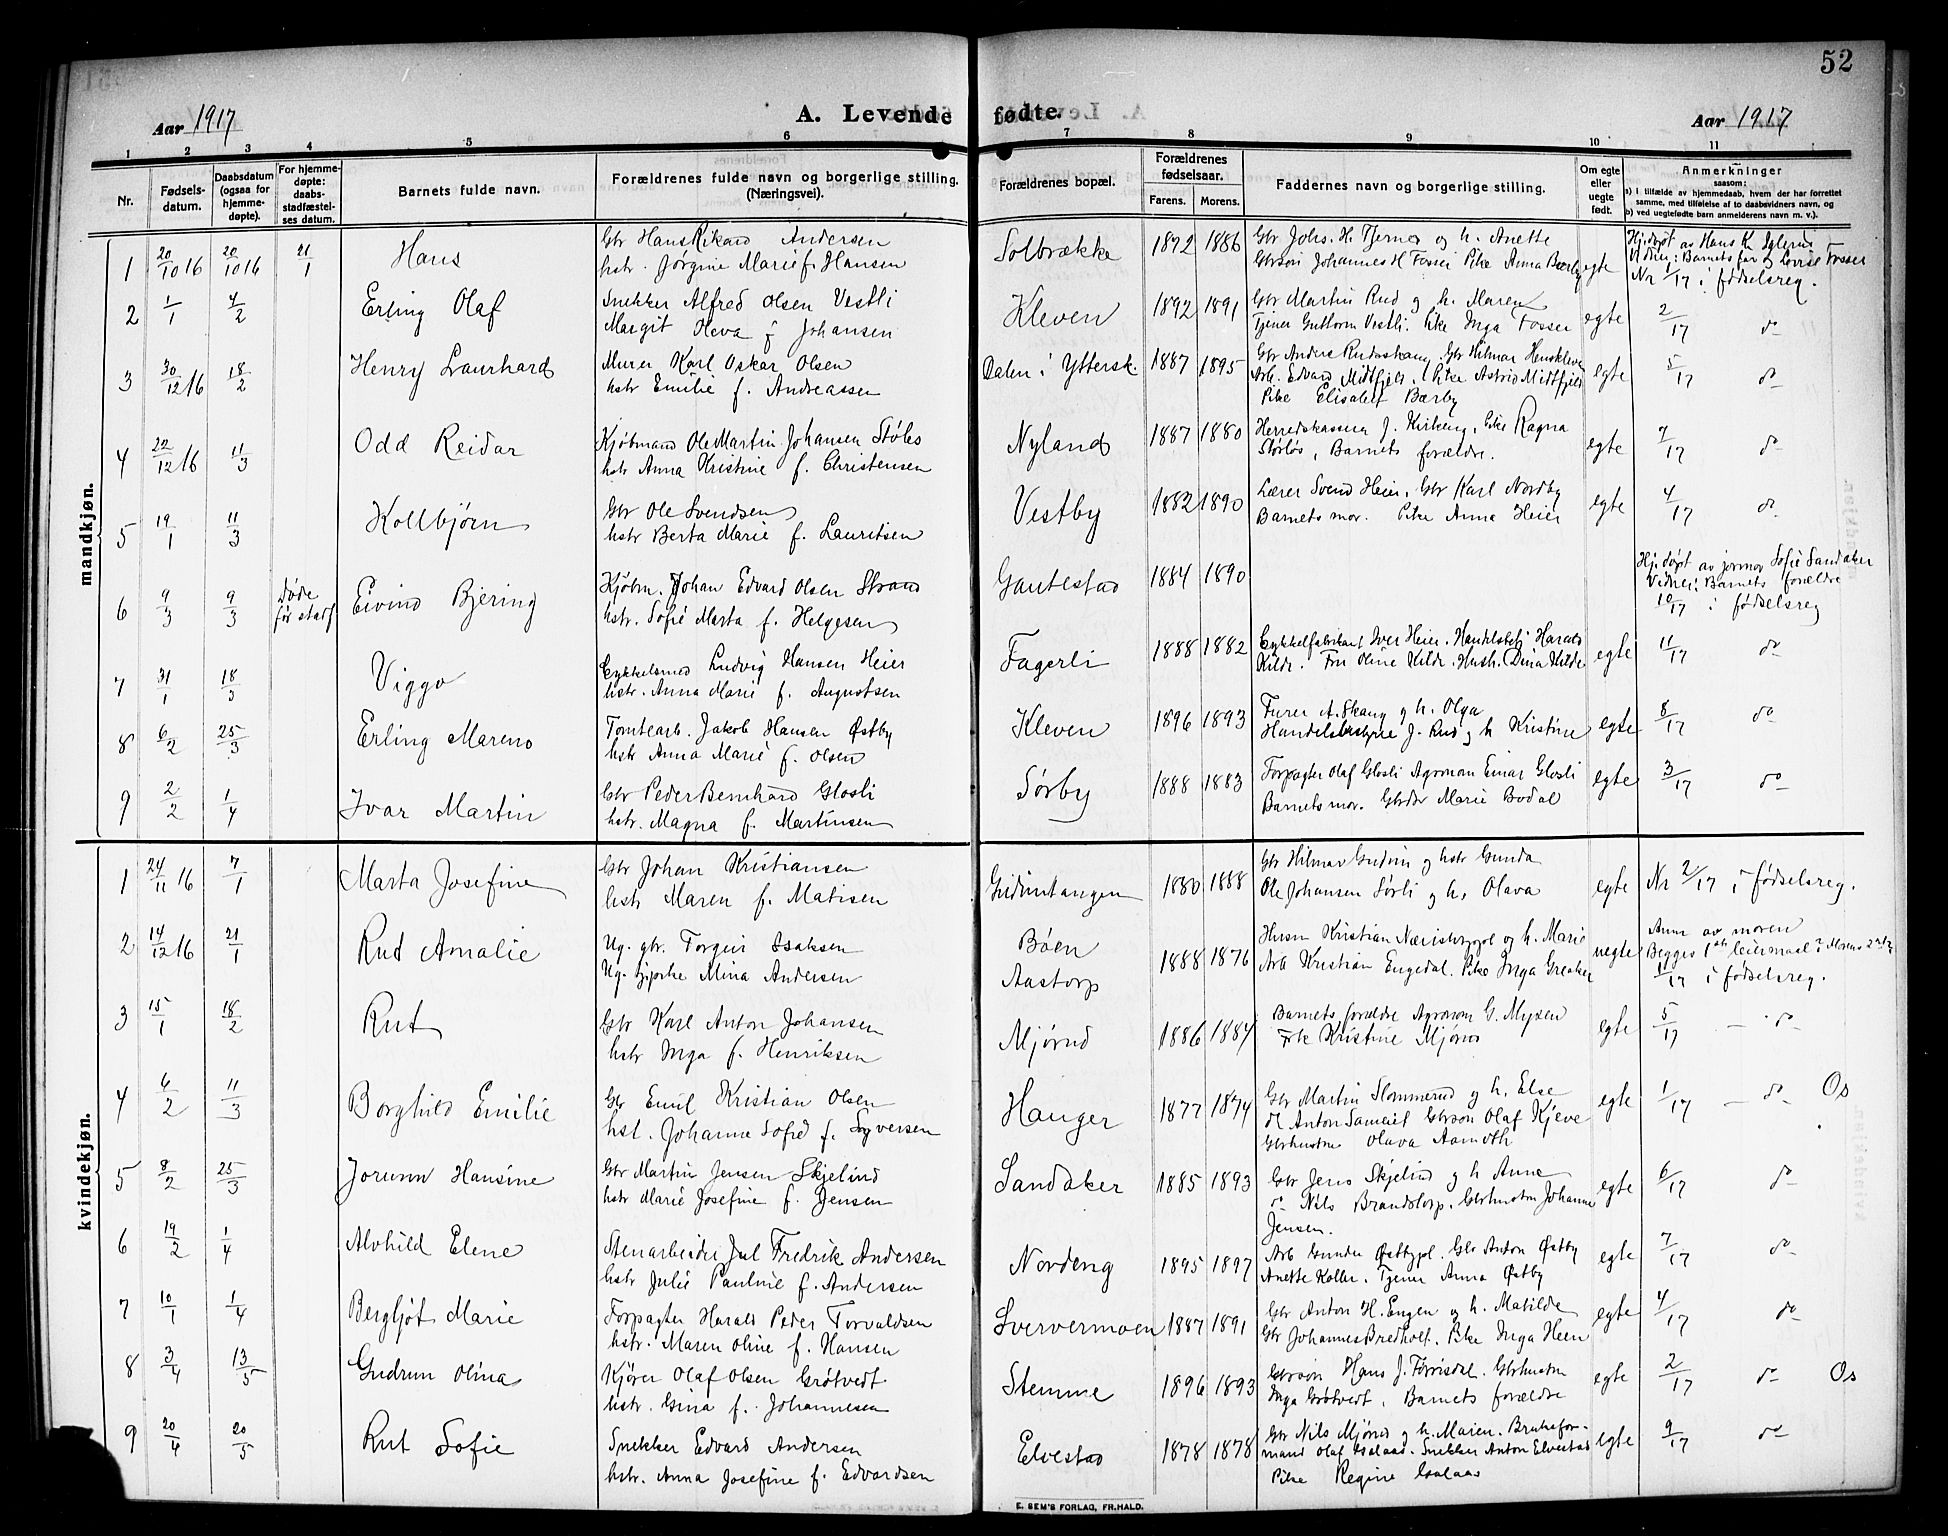 52
Aar 1917
A. Levende fødte.
Aar 1917
1 2 3 4 5 6 7 8 9 10 11
Nr.
Fødsels-
datum.
Daabsdatum
(ogsaa for
hjemme-
døpte).
For hjemme-
døpte:
daabs-
stadfæstel-
ses datum.
Barnets fulde navn.
Forældrenes fulde navn og borgerlige stilling.
(Næringsvei).
Forældrenes bopæl.
Forældrenes
fødselsaar.
Farens. Morens.
Faddernes navn og borgerlige stilling.
Om egte
eller
uegte
født.
Anmerkninger
saasom:
a) I tilfælde av hjemmedaab, hvem der har forrettet
samme, med tilføielse af to daabsvidners navn, og
b) ved uegtefødte barn anmelderens navn m. v.).
mandkjøn.
1 20/10 16 20/10 16 21/1 Hans
Gbr Hans Rikard Andersen
hstr. Jørgine Marie f. Hansen
Solbrække 1892 1886
Gbr Johs. H. Tjernes og h. Anette
Gbrsøn Johannes H Fosser Pike Anna Bærby
egte
Hj.døpt av Hans K.
Vidner: Barnets far og Lovise Fosser
Nr 1/17 i fødselsreg.
2 1/1 4/2 Erling Olaf
Snekker Alfred Olsen Vestli
Margit Oleva f Johansen
Kleven 1892 1891
Gbr Martin Rud og h. Maren
Tjener Guttorm Vestli. Pike Inga Fosser
egte 2/17 do
3 30/12 16 18/2 Henry Laurhard
Murer Karl Oskar Olsen
hstr Emilie f. Andreassen
Dalen i Yttersk. 1887 1895
Gbr Anders Rudsskaug. Gbr Hilmar Henskleve
Arb. Edvard Midtfjeld. Pike Astrid Midtfjeld
Pike Elisabet Bærby
egte 5/17 do
4 22/12 16 11/3 Odd Reidar
Kjøbmand Ole Martin Johansen Støles
hstr Anna Kristine f. Christensen
Nyland 1887 1880
Herredskasserer J. Kirkeng, Pike Ragna
Størløs, Barnets forældre.
egte 7/17 do
5 19/1 11/3 Kollbjørn
Gbr Ole Svendsen
hstr Berta Marie f. Lauritsen
Vestby 1882 1890
Lærer Svend Heier, Gbr Karl Nordby
Barnets mor. Pike Anna Heier
egte 4/17 do
6 9/3 9/3 døde
før stadf
Eivind Bjering
Kjøbm. Johan Edvard Olsen Strand
hstr. Sofie Marta f. Helgesen
Gautestad 1884 1890
Hj.døpt av jormor Sofie Sandaker
Vidner: Barnets forældre
10/17 i fødselsreg
7 31/1 18/3 Viggo
Cykkelsmed Ludvig Hansen Heier
hstr. Anna Marie f. Augustsen
Fagerli 1888 1882
Cykkelfabrikant Iver Heier. Handelsbetj Harald
Kilde. Fru Oline Kilde. Hush. Dina Kilde
egte 11/17 do
8 6/2 25/3 Erling Mareno
Tomtearb. Jakob Hansen Østby
hstr Anna Marie f. Olsen
Kleven 1896 1893
Furer A. Skaug og h. Olga
Handelsbestyrer J. Rud og h Kristine
egte 8/17 do
9 2/2 1/4 Ivar Martin
Gbr Peder Bernhard Glosli
hstr. Magna f. Martinsen
Sørby 1888 1883
Forpagter Olaf Glosli Agronom Einar Glosli
Barnets mor. Gbrdtr Marie Bodal
egte 3/17 do
kvindekjøn.
1 24/11 16 7/1 Marta Josefine
Gbr Johan Kristiansen
hstr Maren f. Matisen
Gudimtangen 1880 1888
Gbr Hilmar Gudim og hstr Gunda
Ole Johansen Sørli og h. Olava
egte Nr 2/17 i fødselsreg.
2 14/12 16 21/1 Rut Amalie
Ug. gbr. Torgeir Isaksen
Ug. Gjøske Mina Andersen
Bøen
Aastorp
1888 1876
Husm Kristian Næristorppl og h. Marie
Arb Kristian Engedal. Pike Inga Greaker
uegte
Anm av moren
Begges 1ste leiermaal ? Morens 2det ?
1/17 i fødselsreg.
3 15/1 18/2 Rut
Gbr Karl Anton Johansen
hstr Inga f. Henriksen
Mjørud 1886 1884
Barnets forældre Agronom G. Mysen
Frk Kristine Mjørud
egte 5/17 — do
4 6/2 11/3 Borghild Emilie
Gbr Emil Kristian Olsen
hst. Johanne Sofie f. Syversen
Hauger 1877 1874
Gbr Martin Slommerud og h. Else
do Anton Sameiet Gbrsøn Olaf Kjeve
Gbrhustru Olava Aamoth
egte 1/17 — do Os
5 8/2 25/3 Jorunn Hansine
Gbr Martin Jensen Skjelind
hstr Marie Josefine f. Jensen
Sandaker 1885 1893
Gbr Jens Skjelind og h Anne
do Nils Brandstorp. Gbrhustru Johanne
Jensen.
egte 6/17 do
6 19/2 1/4 Alvhild Elene
Stenarbeider Jul Fredrik Andersen
hstr Julie Pauline f. Andersen
Nordeng 1895 1897
Arb Gunder Østbypl. Gbr Anton Østby
Anette Koller. Tjener Anna Østby
egte 7/17 do
7 10/1 1/4 Bergljot Marie
Forpagter Harald Peder Torvaldsen
hstr. Maren Oline f. Hansen
Sververmoen 1887 1891
Gbr Anton H. Engen og h. Matilde
Gbr Johannes Bredholt. Pike Inga Heen
egte 4/17 do
8 3/4 13/5 Gudrun Olina
Kjører Olaf Olsen Grøtvedt
hstr. Gina f. Johannesen
Stemme 1896 1893
Gbrsøn Hans J. Tørrisdal. Gbrhustru
Inga Grøtvedt, Barnets forældre
egte 2/17 do Os
9 20/4 20/5 Rut Sofie
Snekker Edvard Andersen
hstr. Anna Josefine f. Edvardsen
Elvestad 1878 1878
Gbr Nils Mjørud og h. Maren. Bruksfor-
mand Olaf Isalaas. Snekker Anton Elvestad
Pike Regine Isalaas
egte 9/17 do
E. SEM'S FORLAG, FR.HALD.